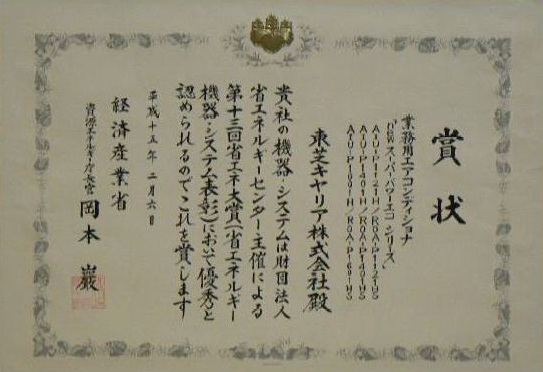 賞状
業務用エアコンディショナ
「NEWスーパーパワーエコシリーズ」
AIU-P1121H/ROA-P1121HS
AIU-P1401H/ROA-P1401HS
AIU-P1601H/ROA-P1601HS
東芝キヤリア株式会社殿
貴社の機器・システムは財団法人
省エネルギーセンター主催による
第十三回省エネ大賞(省エネルギー
機器・システム表彰)において優秀と
認められるのでこれを賞します
平成十五年二月六日
経済産業省
資源エネルギー庁長官 岡本巖